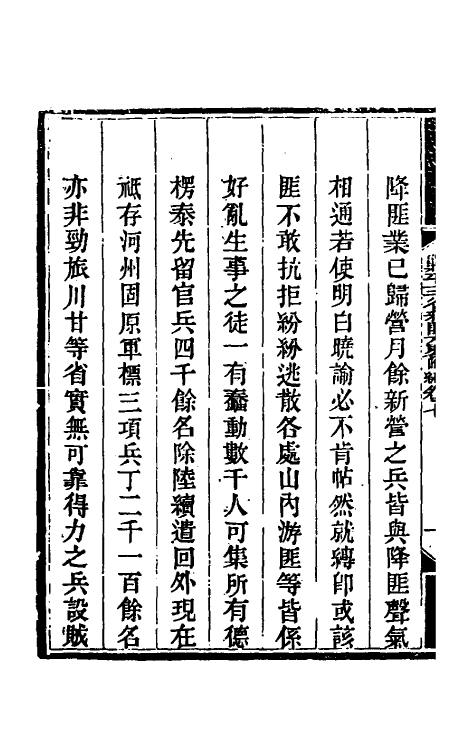 降匪業已歸營月餘新營之兵皆與降匪聲氣
相通若使明白曉諭必不肯帖然就縛卽或該
匪不敢抗拒紛紛逃散各處山內游匪等皆係
好亂生事之徒一有蠢動數千人可集所有德
楞泰先留官兵四千餘名除陸續遣回外現在
祗存河州固原軍標三項兵丁二千一百餘名
亦非勁旅川甘等省實無可靠得力之兵設賊